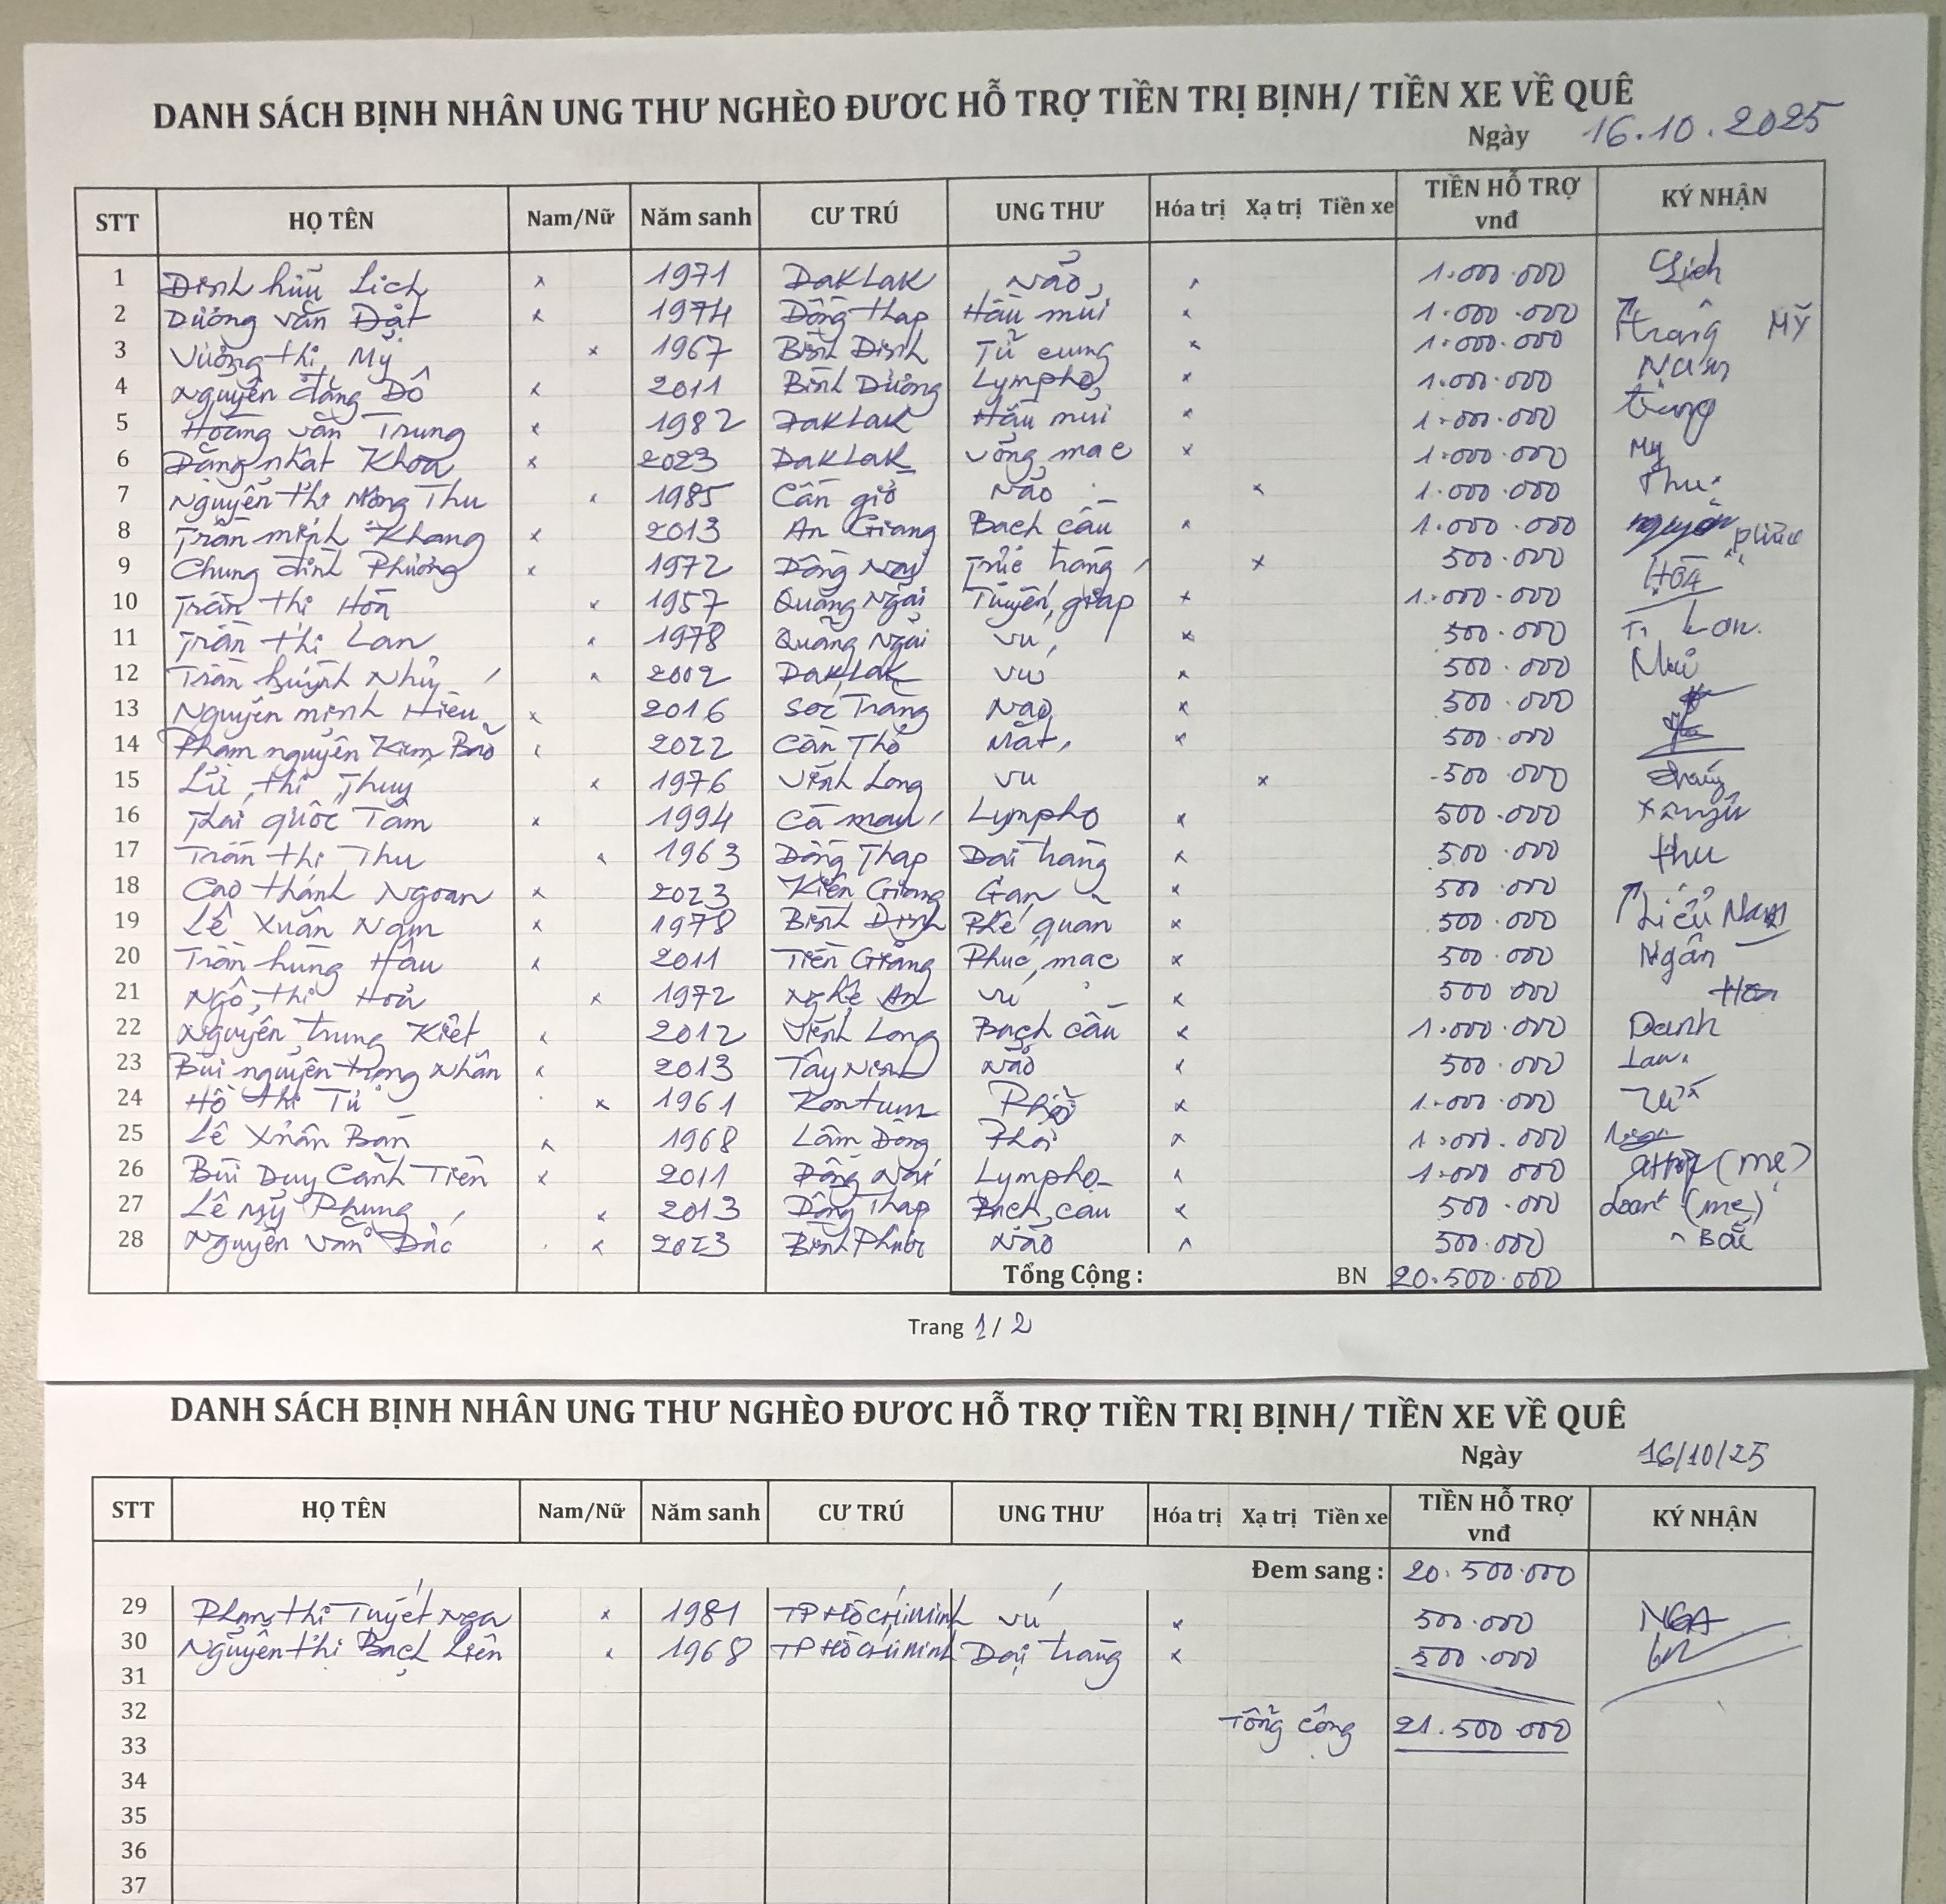 DANH SÁCH BỊNH NHÂN UNG THƯ NGHÈO ĐƯƠC HỖ TRỢ TIỀN TRỊ BỊNH/ TIỀN XE VỀ QUÊ
Ngày 16.10.2025
STT HỌ TÊN Nam/Nữ Năm sanh CƯ TRÚ UNG THƯ Hóa trị Xạ trị Tiền xe TIỀN HỖ TRỢ vnđ KÝ NHẬN
1 Đinh hữu Lich x 1971 DakLak Não x 1.000.000 Lich
2 Dương văn Đạt x 1974 Đồng thap Hầu mũi x 1.000.000
3 Vương thị Mỹ x 1967 Bình Định Tử cung x 1.000.000 Mỹ
4 Nguyễn đăng Đô x 2011 Bình Dương Lympho x 1.000.000
5 Hoàng văn Trung x 1982 DakLak Hầu mũi x 1.000.000 trung
6 Đặng nhât Khoa x 2023 DakLak Võng mac x 1.000.000 My
7 Nguyễn thi Mộng Thu x 1985 Cần giờ Não x 1.000.000 Thu
8 Trần minh Khang x 2013 An Giang Bach cầu x 1.000.000
9 Chung đình Phương x 1972 Đồng Nai Trưc tràng x 500.000
10 Trần thi Hoà x 1957 Quãng Ngãi Tuyến giap x 1.000.000 Hoà
11 Trần thi Lan x 1978 Quãng Ngãi Vu x 500.000 T. Lan
12 Trần huỳnh Như x 2002 DakLak Vú x 500.000 Như
13 Nguyễn minh Hiêu x 2016 Sóc Trăng Nao x 500.000
14 Phạm nguyễn Kim Bảo x 2022 Cần Thơ Măt x 500.000
15 Lữ thi Thuy x 1976 Vĩnh Long Vu x 500.000
16 Thái quốc Tâm x 1994 Cà mau Lympho x 500.000
17 Trần thi Thu x 1963 Đồng Thap Dai tràng x 500.000 thu
18 Cao thánh Ngoan x 2023 Kiên Giang Gan x 500.000
19 Lê Xuân Nam x 1978 Bình Định Phế quan x 500.000 Nam
20 Trần hùng Hâu x 2011 Tiền Giang Phúc mac x 500.000 Ngân
21 Ngô thi Hoà x 1972 Nghê An Vú x 500 000 Hoa
22 Nguyễn trung Kiêt x 2012 Vĩnh Long Bach cầu x 1.000.000 Danh
23 Bùi nguyễn trọng Nhân x 2013 Tây Ninh Não x 500.000 Lan
24 Hồ thi Tư x 1961 Kontum Phổi x 1.000.000
25 Lê Xuân Ban x 1968 Lâm Đồng Phổi x 1.000.000
26 Bùi Duy Cảnh Tiên x 2011 Đồng Nai Lympho x 1.000 000 (mẹ)
27 Lê Mỹ Phung x 2013 Đồng Thap Bach cau x 500.000 (mẹ)
28 Nguyễn văn Bắc x 2023 Bình Phước Não x 500.000 Bắc
Tổng Cộng : BN 20.500.000
Trang 1/2
DANH SÁCH BỊNH NHÂN UNG THƯ NGHÈO ĐƯƠC HỖ TRỢ TIỀN TRỊ BỊNH/ TIỀN XE VỀ QUÊ
Ngày 16/10/25
STT HỌ TÊN Nam/Nữ Năm sanh CƯ TRÚ UNG THƯ Hóa trị Xạ trị Tiền xe TIỀN HỖ TRỢ vnđ KÝ NHẬN
Đem sang : 20.500.000
29 Phạm thi Tuyết Nga x 1981 TP Hồ Chí Minh vú x 500.000 NGA
30 Nguyễn thi Bạch Liên x 1968 TP Hồ Chí Minh Đại tràng x 500.000
31
32 Tổng cộng 21.500 000
33
34
35
36
37